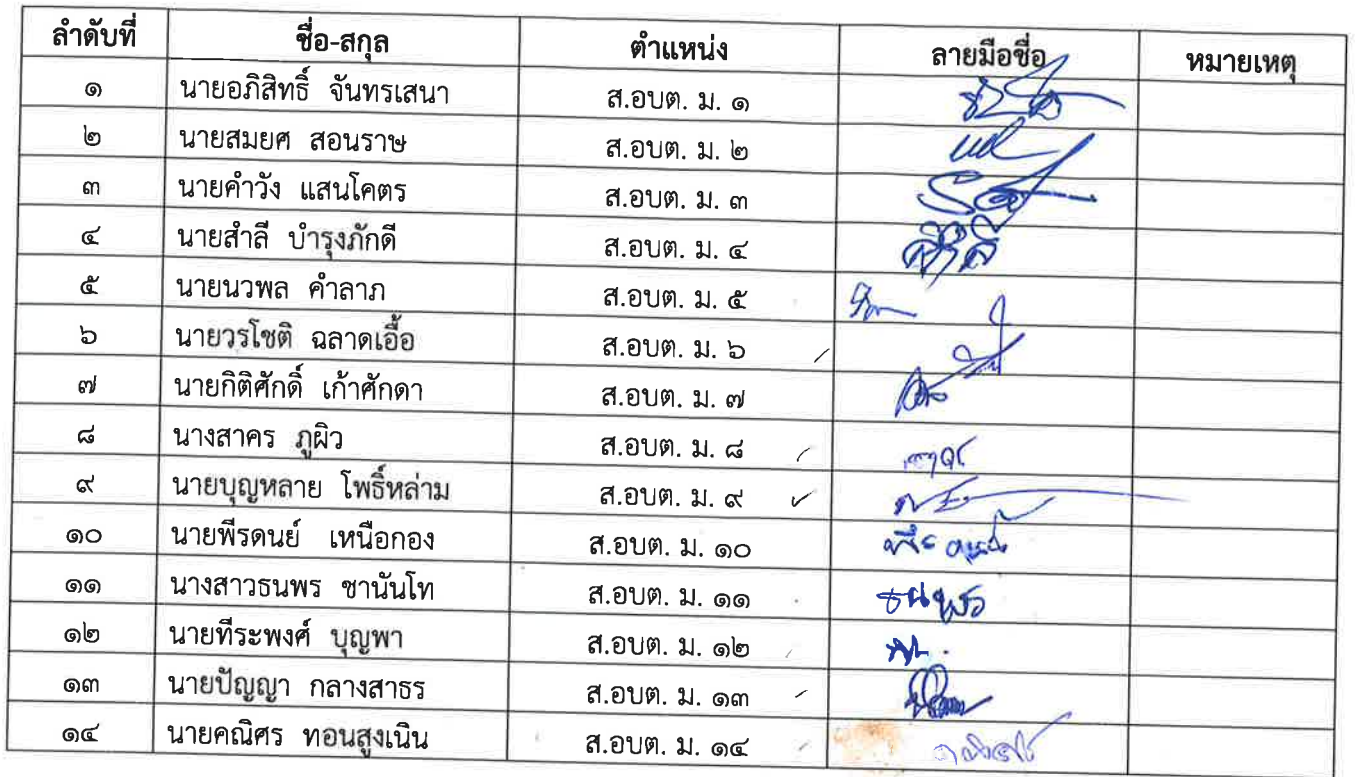 ลำดับที่ ชื่อ-สกุล ตำแหน่ง ลายมือชื่อ หมายเหตุ
๑ นายอภิสิทธิ์ จันทรเสนา ส.อบต. ม. ๑
๒ นายสมยศ สอนราษ ส.อบต. ม. ๒
๓ นายคำวัง แสนโคตร ส.อบต. ม. ๓
๔ นายสำลี บำรุงภักดี ส.อบต. ม. ๔
๕ นายนวพล คำลาภ ส.อบต. ม. ๕
๖ นายวรโชติ ฉลาดเอื้อ ส.อบต. ม. ๖
๗ นายกิติศักดิ์ เก้าศักดา ส.อบต. ม. ๗
๘ นางสาคร ภูผิว ส.อบต. ม. ๘
๙ นายบุญหลาย โพธิ์หล่าม ส.อบต. ม. ๙
๑๐ นายพีรดนย์ เหนือกอง ส.อบต. ม. ๑๐
๑๑ นางสาวธนพร ซานันโท ส.อบต. ม. ๑๑ ธนพร
๑๒ นายทีระพงศ์ บุญพา ส.อบต. ม. ๑๒
๑๓ นายปัญญา กลางสาธร ส.อบต. ม. ๑๓
๑๔ นายคณิศร ทอนสูงเนิน ส.อบต. ม. ๑๔